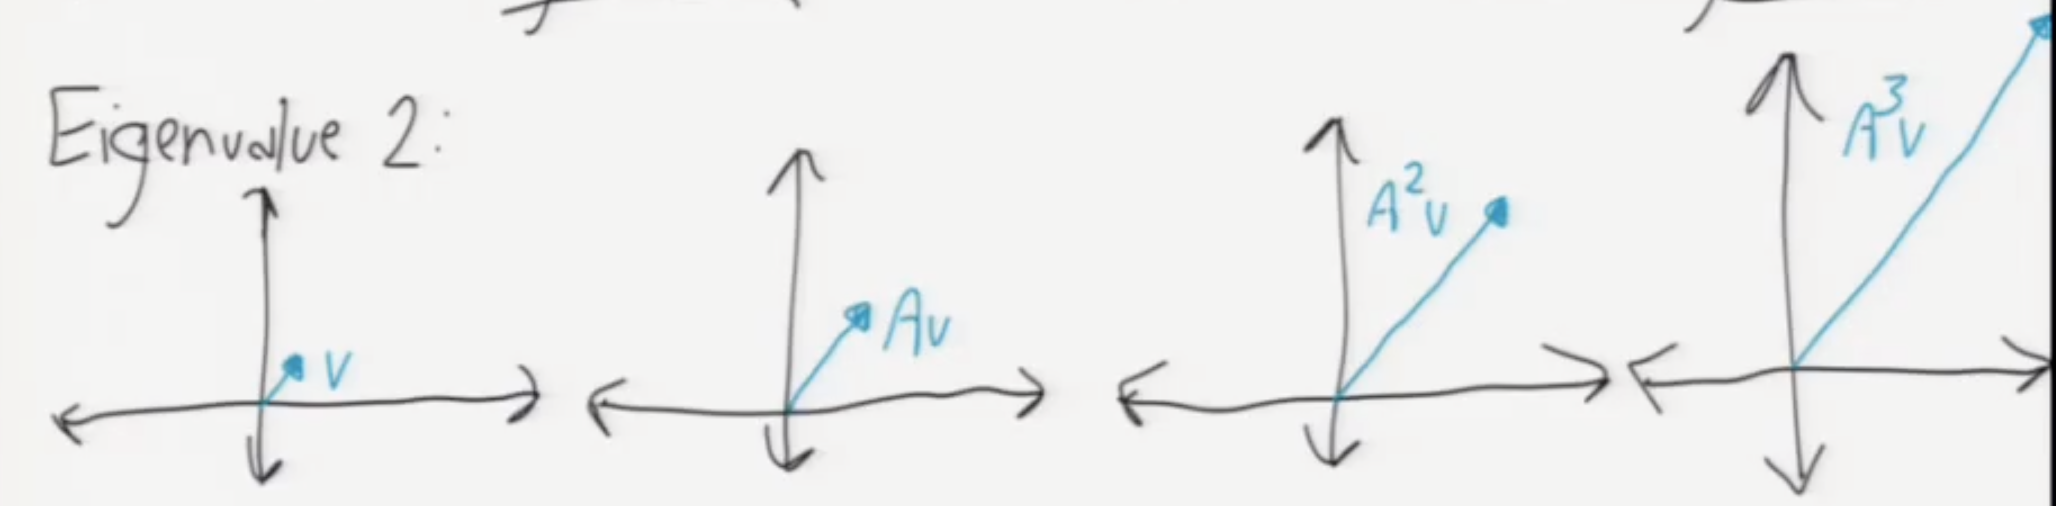 Eigenvalue 2:
v
Av
A²v
A³v